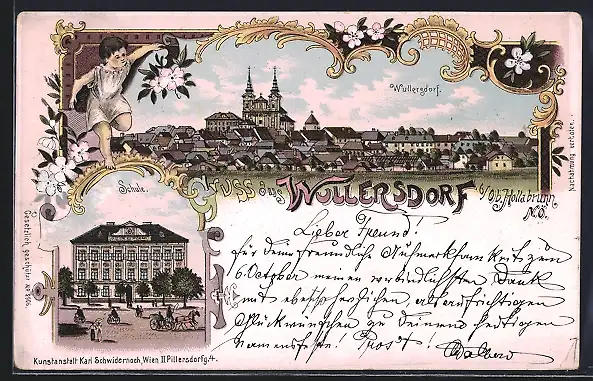 Wullersdorf.
Gruss aus Wullersdorf b/Ob. Hollabrunn N.Ö.
Nachahmung verboten.
Schule.
Gesetzlich geschützt
Lieber Freund!
Für deine freundliche Aufmerksamkeit zum
6 October meinen verbindlichsten Dank
mit ebenso herzlichen, als aufrichtigen
Glückwünschen zu Deinem heutigen
Namensfeste! Prost!
Kunstanstalt Karl Schwidernoch, Wien II Pillersdorfg. 4.